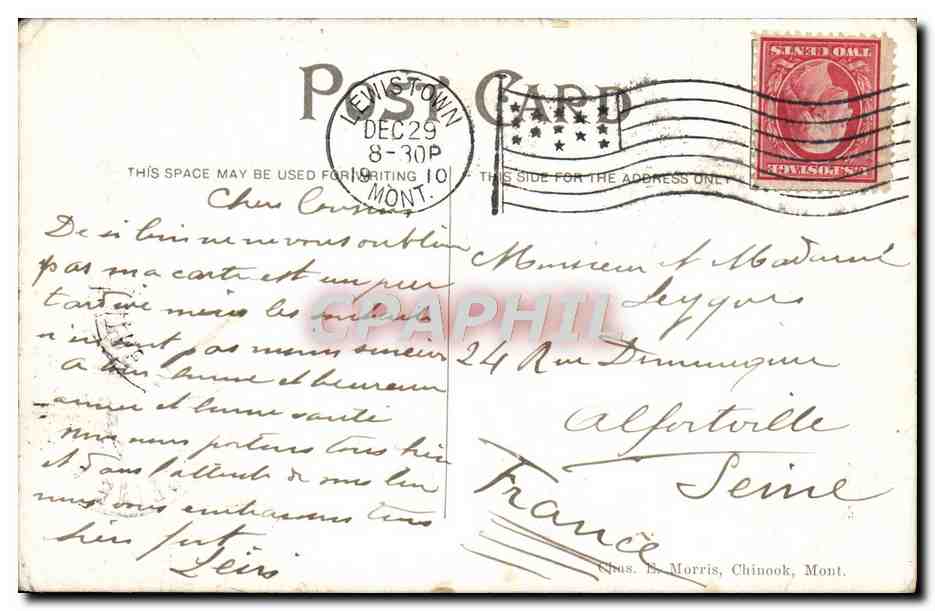 POST CARD
LEWISTOWN
DEC 29
8-30P
1910
MONT.
TWO CENTS
U.S. POSTAGE
THIS SPACE MAY BE USED FOR WRITING
THIS SIDE FOR THE ADDRESS ONLY
Chers Cousins
De si loin ne vous oublier
pas ma carte est un peu
tardive mais les souhaits
n'en sont pas moins
a tous bonne et heureuse
année et bonne santé
nous nous portons tous bien
et dans l'attente de vous lire
nous vous embrassons tous
bien fort
Monsieur et Madame
24 Rue
Alfortville
Seine
France
CPAPHIL
Chas. E. Morris, Chinook, Mont.